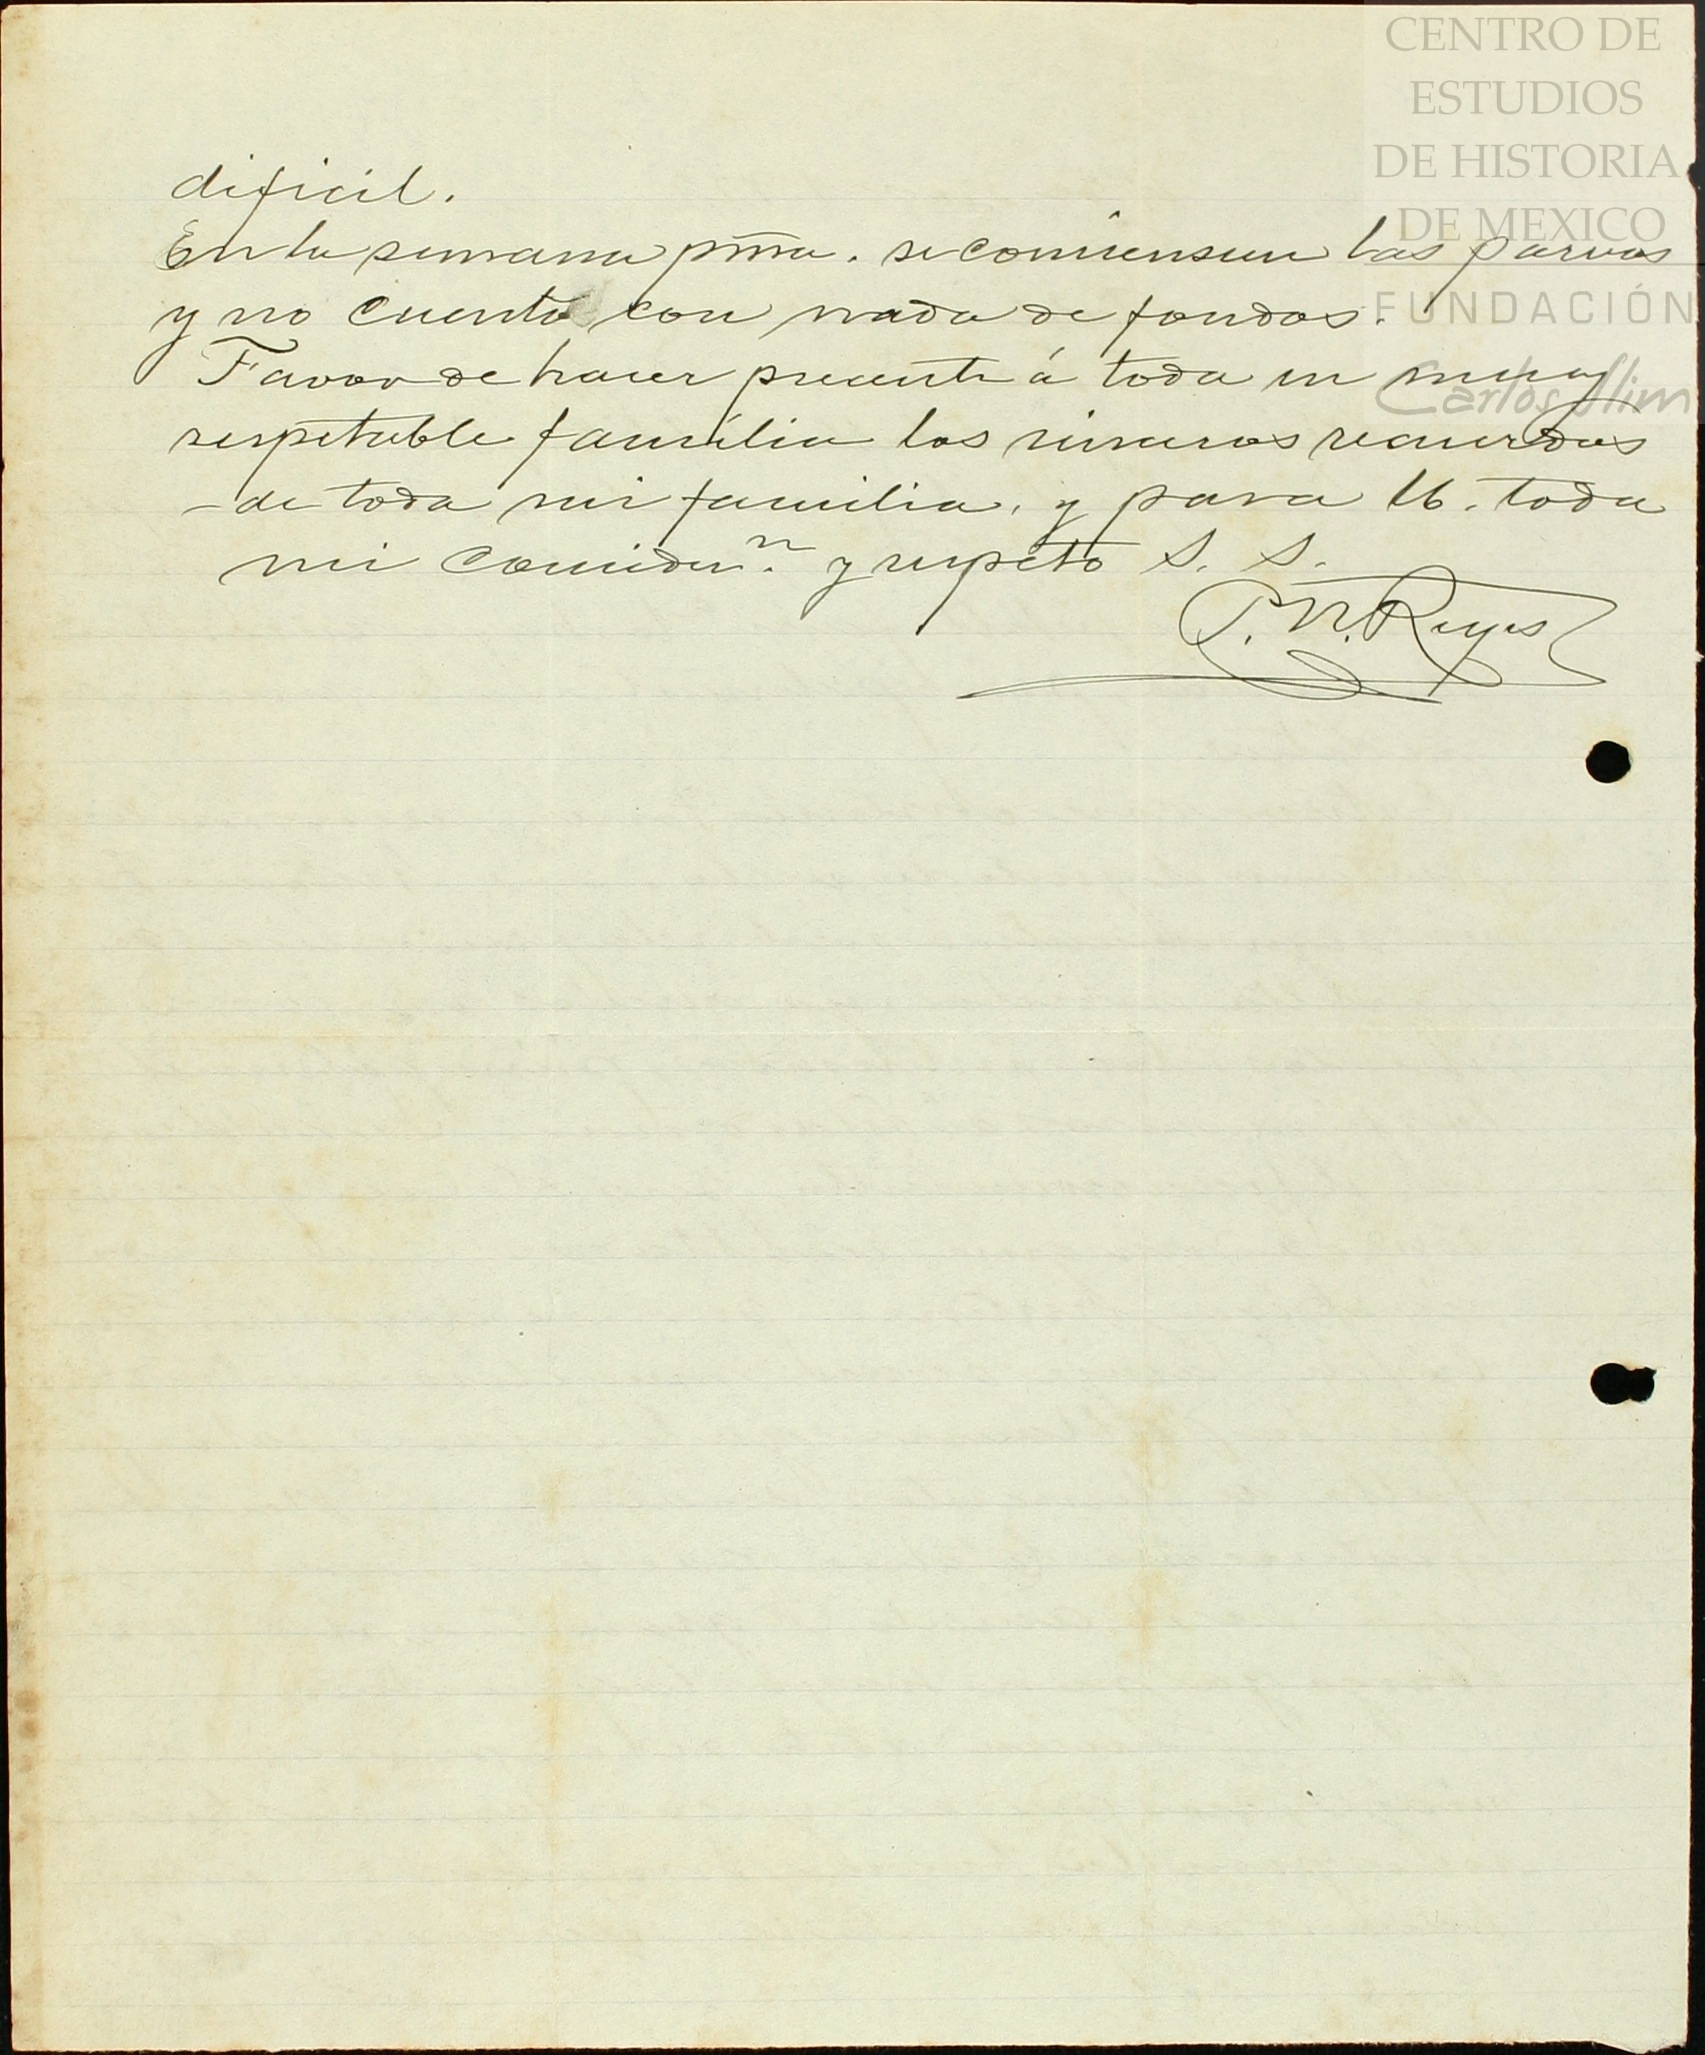 CENTRO DE
ESTUDIOS
DE HISTORIA
DE MEXICO
FUNDACIÓN
Carlos Slim
dificil.
En la semana pma. se comiensan las parvas
y no cuento con nada de fondos.
Favor de hacer precente á toda su muy
respetable familia los sinceros recuerdos
de toda mi familia, y para U. toda
mi considen. y respeto S. S.
P. N. Reyes